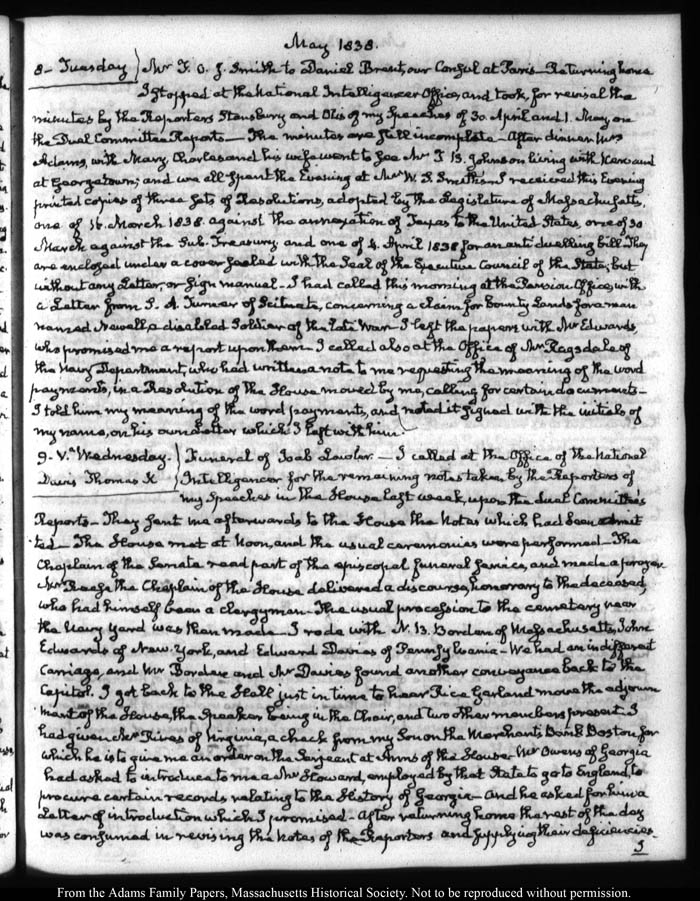 May 1838.
8. Tuesday} Mr F. O. J. Smith to Daniel Brent, our Consul at Paris. Returning home
I stopped at the National Intelligencer Office, and took, for revisal the
minutes by the Reporters Stansbury and Otis of my Speeches of 30 April and 1. May, on
the Duel Committee Reports — The minutes are still incomplete — After dinner Mrs
Adams, with Mary, Charles and his wife went to see Mrs T B. Johnson living with
at Georgetown; and we all spent the Evening at Mrs W. S. Smith's. I received this Evening
printed copies of three sets of Resolutions, adopted by the Legislature of Massachusetts,
one of 16. March 1838. against the annexation of Texas to the United States, one of 30
March against the Sub. Treasury, and one of 4. April 1838 for an anti duelling bill. They
are enclosed under a cover sealed with the Seal of the Executive Council of the State; but
without any Letter, or sign manual. I had called this morning at the Pension Office, with
a Letter from S. A. Turner of Scituate, concerning a claim for Bounty Lands for a man
named Newell, a disabled Soldier of the late War. I left the papers with Mr Edwards,
who promised me a report upon them. I called also at the Office of Mr Ragsdale of
the Navy Department, who had written a note to me requesting the meaning of the word
payments, in a Resolution of the House moved by me, calling for certain documents —
I told him my meaning of the word payments, and noted it signed with the initials of
my name, on his own Letter which I left with him.
9. V. Wednesday. } Funeral of Joab Lawler. — I called at the Office of the National
Davis Thomas K } Intelligencer for the remaining notes taken by the Reporters of
my Speeches in the House last week, upon the duel Committee's
Reports — They sent me afterwards to the House the Notes which had been omit
ted — The House met at Noon, and the usual ceremonies were performed — The
Chaplain of the Senate read part of the episcopal funeral service, and made a prayer.
Mr Reese the Chaplain of the House delivered a discourse, honorary to the deceased,
who had himself been a clergyman — The usual procession to the cemetery near
the Navy Yard was then made — I rode with N. B. Borden of Massachusetts, John
Edwards of New. York, and Edward Davies of Pennsylvania — We had an indifferent
Carriage, and Mr Borden and Mr Davies found another conveyance back to the
Capitol. I got back to the Hall just in time to hear Rice Garland move the adjourn
ment of the House, the Speaker being in the Chair, and two other members present. I
had given Mr Rives of Virginia, a check from my Son on the Merchants Bank Boston, for
which he is to give me an order on the Serjeant at Arms of the House. Mr Owens of Georgia
had asked to introduce to me a Mr Howard, employed by that State to go to England, to
procure certain records relating to the History of Georgia — And he asked for him a
Letter of introduction which I promised — After returning home the rest of the day
was consumed in revising the Notes of the Reporters and supplying their deficiencies.
5
From the Adams Family Papers, Massachusetts Historical Society. Not to be reproduced without permission.